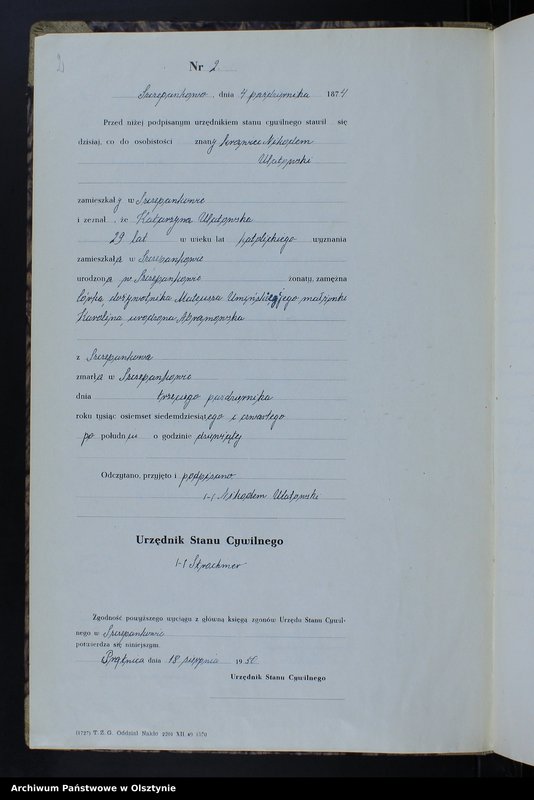 2
Nr 2
Szczepankowo, dnia 4 października 1874
Przed niżej podpisanym urzędnikiem stanu cywilnego stawił się
dzisiaj, co do osobistości znany krawiec Nikodem
Ulatowski
zamieszkały w Szczepankowie
i zeznał, że Katarzyna Ulatowska
29 lat w wieku lat katolickiego wyznania
zamieszkała w Szczepankowie
urodzona w Szczepankowie zonaty, zamężna
córka, dożywotnika Mateusza i jego małżonki
Karolina, urodzona Abramowska
z Szczepankowa
zmarła w Szczepankowie
dnia trzeciego października
roku tysiąc osiemset siedemdziesiątego i czwartego
po południu o godzinie dziewiątej
Odczytano, przyjęto i podpisano
/-/ Nikodem Ulatowski
Urzędnik Stanu Cywilnego
/-/
Zgodność powyższego wyciągu z główną księgą zgonów Urzędu Stanu Cywil-
nego w Szczepankowie
potwierdza się niniejszym.
dnia 18 sierpnia 1950
Urzędnik Stanu Cywilnego
(1727) T. Z. G. Oddział Nakło 2201 XII. 49 1370
Archiwum Państwowe w Olsztynie